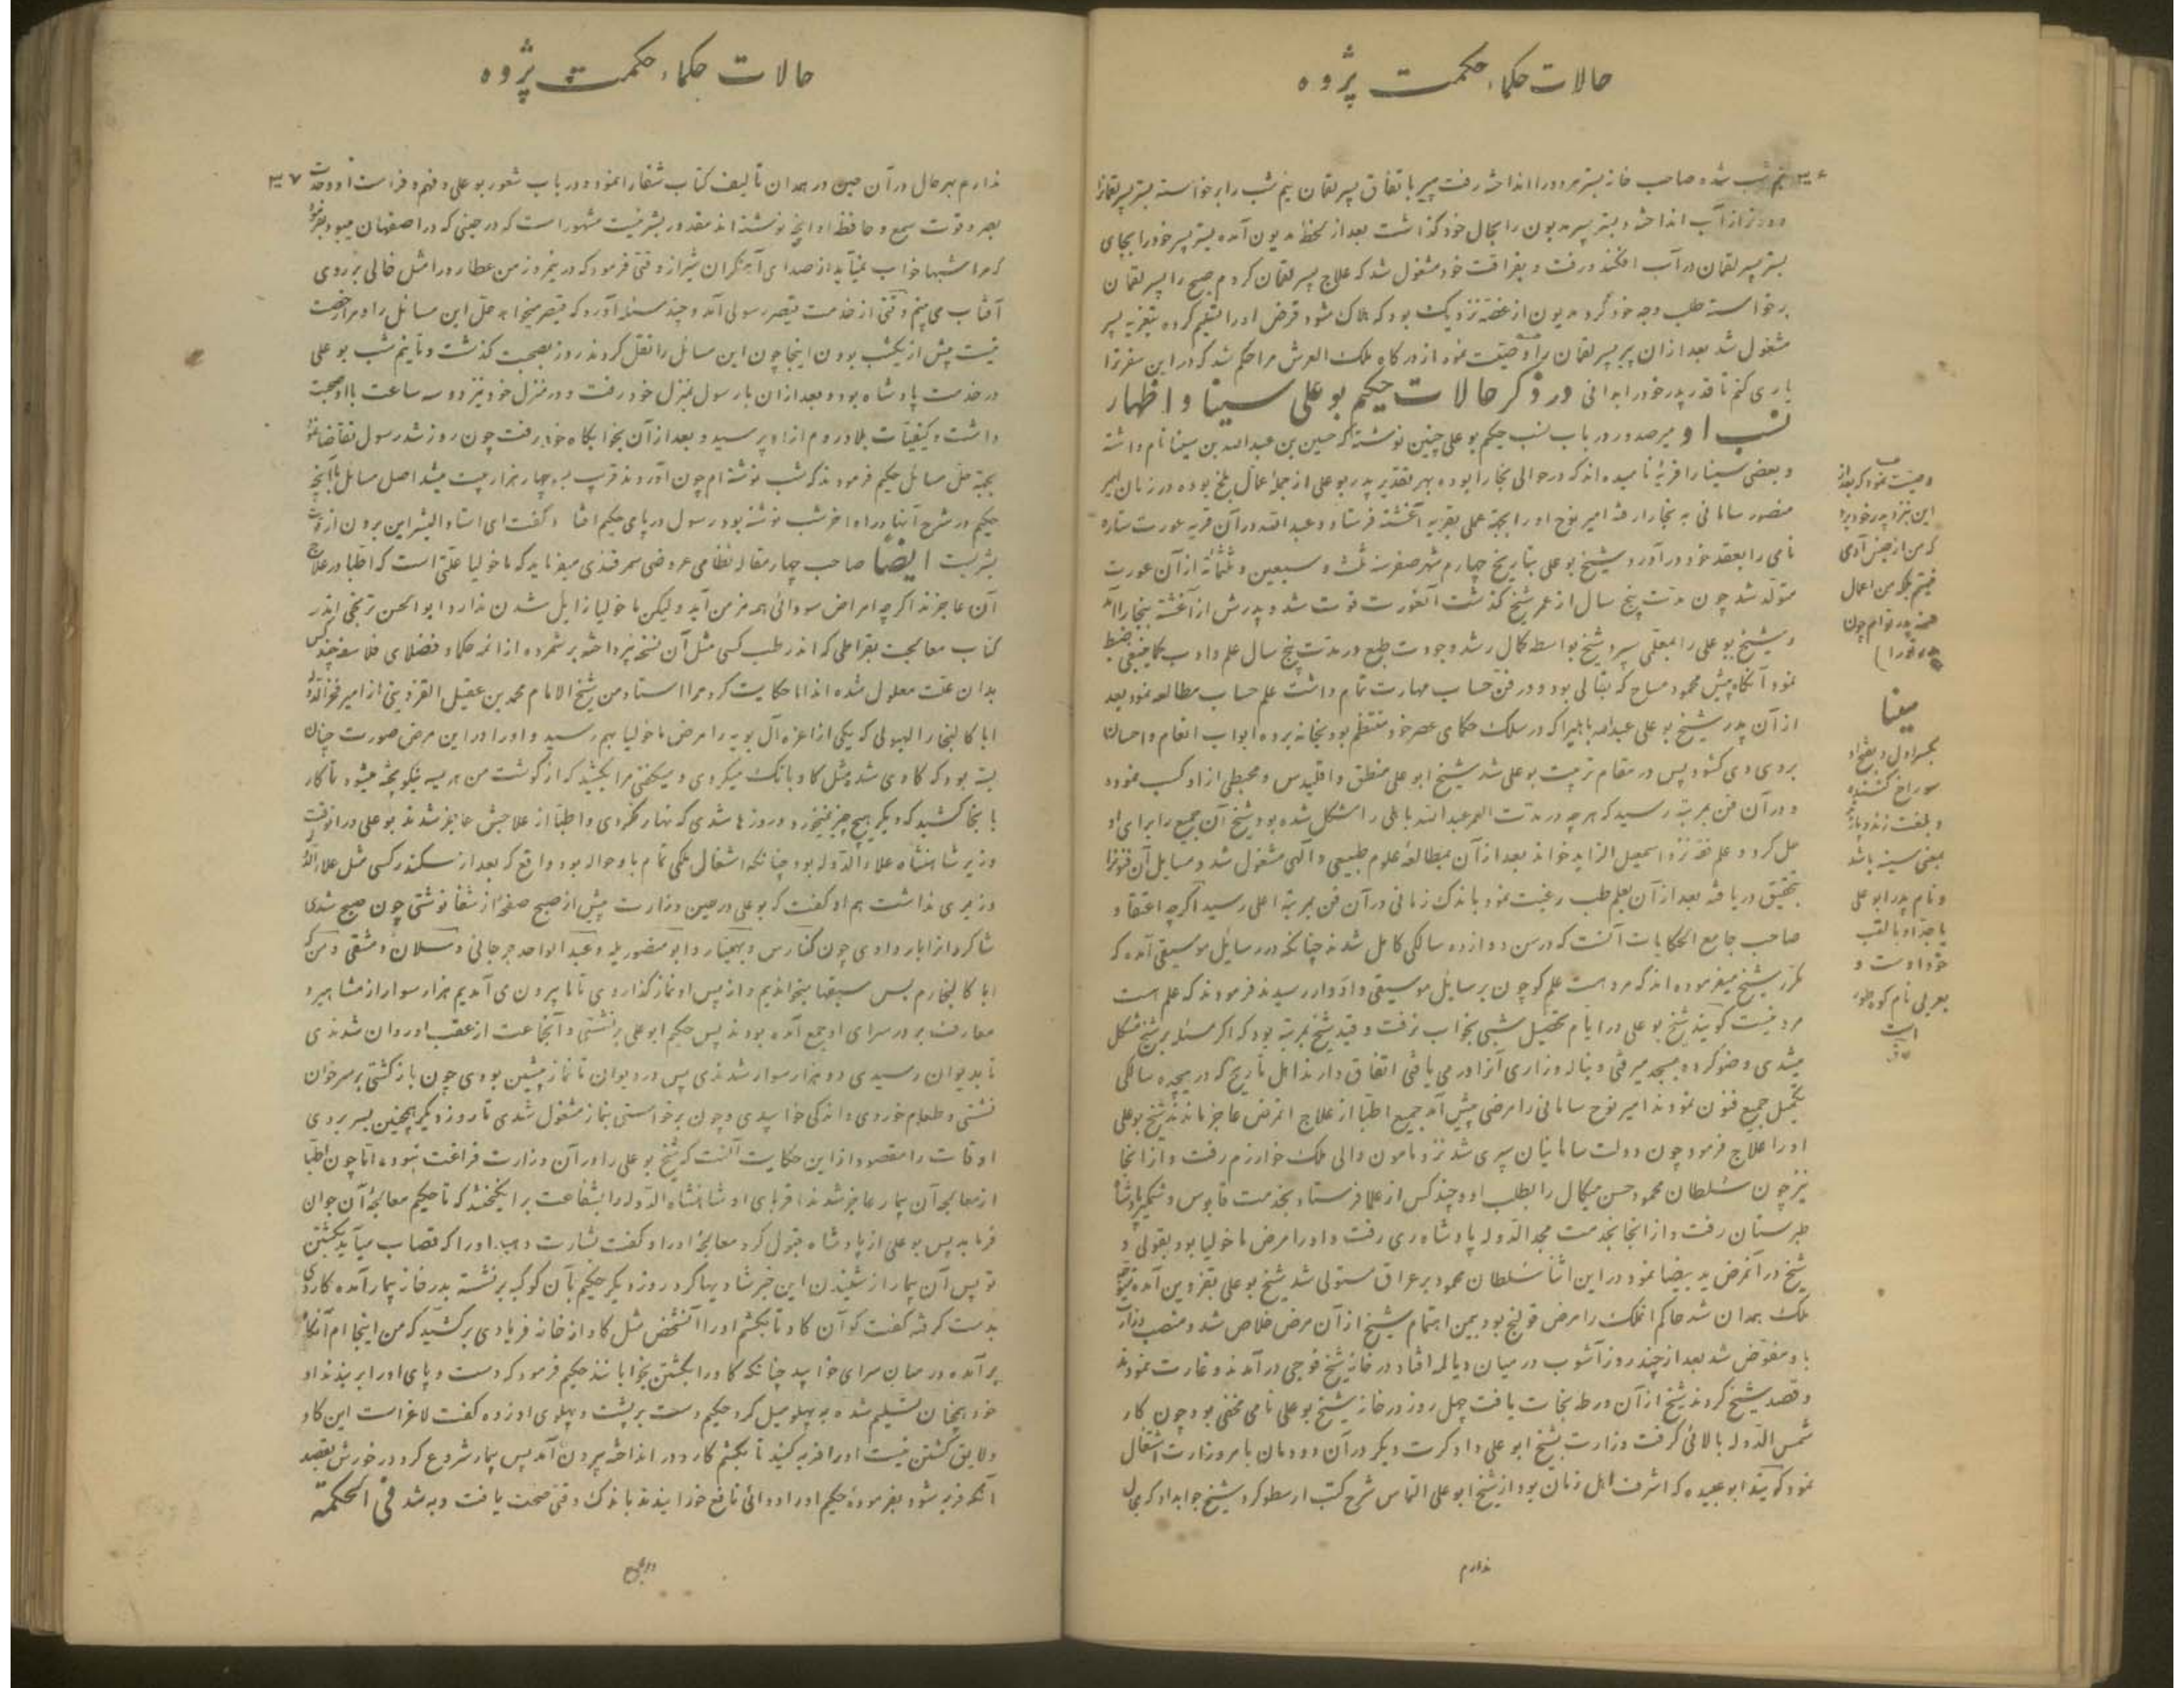 حالات حکماء حکمت پژوه
نیم شب شد و صاحب خانه بستر هر دو را انداخته رفت پیر باتفاق پسر لقمان نیم شب را برخواسته بستر پسر لقمانرا
دورتر از آب انداخته و بستر پسر مدیون را بحال خود گذاشت بعد از لحظه مدیون آمده بستر پسر خود را بجای
بستر پسر لقمان در آب افکند و رفت و بفراغت خود مشغول شد که علاج پسر لقمان کردم صبح را پسر لقمان
برخواسته طلب وجه خود کرد مدیون از غصه نزدیک بود که هلاک شود قرض او را تسلیم کرده بتعزیه پسر
مشغول شد بعد از ان پیر پسر لقمان را وصیت نمود از درگاه ملک العرش مرا حکم شد که در این سفر ترا
یاری کنم تا قدر پدر خود را بدانی در ذکر حالات حکیم بو علی سینا و اظهار
نسب او میر صدور در باب نسب حکیم بو علی چنین نوشته که حسین بن عبد الله بن سینا نام داشته
و بعضی سینا را قریهٔ نامیده اند که در حوالی بخارا بوده بهر تقدیر پدر بو علی از جملهٔ عمال بلخ بوده در زمان امیر
منصور سامانی به بخارا رفته امیر نوح او را بجهة عملی بقریه آغشنه فرستاد و عبد الله در آن قریه عورت ستاره
نامی را بعقد خود در آورد و شیخ بو علی بتاریخ چهارم شهر صفر سنه ثلث و سبعین و ثلثمائة از آن عورت
متولد شد چون مدت پنج سال از عمر شیخ گذشت آنعورت فوت شد و پدرش از آغشنه ببخارا آمد
و شیخ بو علی را بمعلمی سپرد شیخ بواسطه کمال رشد و جودت طبع در مدت پنج سال علم و ادب کما ینبغی ضبط
نمود آنگاه پیش محمود مساح که بقالی بود و در فن حساب مهارت تمام داشت علم حساب مطالعه نمود بعد
از آن پدر شیخ بو علی عبد الله بابلیرا که در سلک حکمای عصر خود منتظم بود بخانه برده ابواب انعام و احسان
بروی وی گشود پس در مقام تربیت بو علی شد شیخ ابو علی منطق و اقلیدس و مجسطی از او کسب نموده
و در آن فن بمرتبهٔ رسید که هر چه در مدت العمر عبد الله بابلی را مشکل شده بود شیخ آن جمیع را برای او
حل کرد و علم فقه نزد اسمعیل الزاید خواند بعد از آن بمطالعهٔ علوم طبیعی و الهی مشغول شد و مسایل آن فنونرا
بتحقیق دریافته بعد از آن بعلم طب رغبت نمود باندک زمانی در آن فن بمرتبهٔ اعلی رسید اگر چه اعتقاد
صاحب جامع الحکایات آنست که در سن دوازده سالگی کامل شدند چنانکه در رسایل موسیقی آمده که
مکرر شیخ میفرموده اند که مرد هست علم کو چون برسایل موسیقی و ادوار رسیدند فرمودند که علم هست
مرد نیست گویند شیخ بو علی در ایام تحصیل شبی بخواب نرفت و قید شیخ بمرتبهٔ بود که اگر مسئله بر شیخ مشکل
میشدی وضو کرده بمسجد میرفتی و بناله و زاری آنرا در می یافتی اتفاق دارند اهل تاریخ که در هیجده سالگی
تکمیل جمیع فنون نمودند امیر نوح سامانی را مرضی پیش آمد جمیع اطبا از علاج انمرض عاجز ماندند شیخ بوعلی
او را علاج فرمود چون دولت سامانیان سپری شد نزد مامون والی ملک خوارزم رفت و از انجا
نیز چون سلطان محمود حسن میکال را بطلب او و چند کس از علما فرستاد بخدمت قابوس وشمگیر پادشاه
طبرستان رفت و از انجا بخدمت مجد الدوله پادشاه ری رفت و او را مرض ماخولیا بود بقولی و
شیخ در آنمرض ید بیضا نمود در این اثنا سلطان محمود بر عراق مستولی شد شیخ بو علی بقزوین آمده متوجه
ملک همدان شد حاکم انملک را مرض قولنج بود بیمن اهتمام شیخ از آن مرض خلاص شد و منصب وزارت
باو مفوض شد بعد از چند روز آشوب در میان دیالمه افتاد در خانهٔ شیخ فوجی در آمدند و غارت نمودند
و قصد شیخ کردند شیخ از آن ورطه نجات یافت چهل روز در خانه شیخ بو علی نامی مخفی بود چون کار
شمس الدوله بالائی گرفت وزارت بشیخ ابو علی داد کرت دیگر در آن دودمان بامر وزارت اشتغال
نمود گویند ابو عبیده که اشرف اهل زمان بود از شیخ ابو علی التماس شرح کتب ارسطو کرد شیخ جواب داد که مجال
ندارم
وصیت نمود که بعد از
این نزد پدر خود برو
که من از جنس آدمی
نیستم بلکه من اعمال
حسنه پدر توام چون
سینا
بکسر اول و بضم او
سوراخ کننده
و بلغت زند و پازند
بمعنی سینه باشد
و نام پدر ابو علی
یا جد او یا لقب
خود اوست و
بعربی نام کوه طور
است
حالات حکماء حکمت پژوه
ندارم بهر حال در آن حین در همدان تألیف کتاب شفا را نمود و در باب شعور بو علی و فهم و فراست او و حدت
بصر و قوت سمع و حافظه او انچه نوشته اند مقدور بشر نیست مشهور است که در حینی که در اصفهان میبود میفرمود
که مرا شبها خواب نمیآید از صدای آهنگران شیراز وقتی فرمود که در نیمروز من عطارد را مثل خالی بر روی
آفتاب می بینم وقتی از خدمت قیصر رسولی آمد و چند مسئله آورد که قیصر میخواهد حل این مسائل را و مرا رخصت
نیست پیش از یکشب بودن اینجا چون این مسائل را نقل کردند روز بصحبت گذشت و تا نیم شب بو علی
در خدمت پادشاه بود و بعد از ان با رسول بمنزل خود رفت و در منزل خود نیز دو سه ساعت با او صحبت
داشت و کیفیات بلاد روم از او پرسید و بعد از آن بخوابگاه خود رفت چون روز شد رسول تقاضا نمود
بجهة حل مسائل حکیم فرمودند که شب نوشته ام چون آوردند قریب بچهار هزار بیت میشد اصل مسایل با آنچه
حکیم در شرح آنها در اواخر شب نوشته بود رسول در پای حکیم افتاد و گفت ای استاد البشر این برون از قوت
بشریت ایضا صاحب چهار مقاله نظامی عروضی سمرقندی میفرماید که ماخولیا علتی است که اطبا در علاج
آن عاجزند اگر چه امراض سودائی همه مزمن آید و لیکن ماخولیا زایل شدن ندارد ابو الحسن ترنجی اندر
کتاب معالجت بقراطی که اندر طب کسی مثل آن نسخه نپرداخته بر شمرده از ائمه حکما و فضلای فلاسفه چند کس
بدان علت معلول شده اند اما حکایت کرد مرا استاد من شیخ الامام محمد بن عقیل القزوینی از امیر فخر الدوله
ابا کالنجار البویی که یکی از اعزه آل بویه را مرض ماخولیا بهم رسید و او را در این مرض صورت چنان
بسته بود که گاوی شد مثل گاو بانگ میکردی و میگفتی مرا بکشید که از گوشت من هریسه نیکو پخته میشود تا کار
بانجا کشید که دیگر هیچ چیز نمیخورد و روزها شدی که نهار نکردی و اطبا از علاجش عاجز شدند بو علی در انوقت
وزیر شاهنشاه علاء الدوله بود چنانکه اشغال ملکی تمام باو حواله بود و واقع که بعد از سکندر کسی مثل علاء الدوله
وزیری نداشت هم او گفت که بو علی در حین وزارت پیش از صبح صفحهٔ از شفا نوشتی چون صبح شدی
شاگردانرا بار دادی چون کیارس و بهمنیار و ابو منصور یله و عبد الواحد جرجانی و سلان دمشقی و من که
ابا کالنجارم پس سبقها میخواندیم و از پس او نماز گذاردی تا ما بیرون می آمدیم هزار سوار از مشاهیر و
معارف بر در سرای او جمع آمده بودند پس حکیم ابو علی بر نشستی و آنجماعت از عقب او روان شدندی
تا بدیوان رسیدی دو هزار سوار شدندی پس در دیوان تا نماز پیشین بودی چون بازگشتی بر سر خوان
نشستی و طعام خوردی و اندکی خوابیدی و چون برخواستی بنماز مشغول شدی تا روز دیگر همچنین بسر بردی
اوقات را مقصود از این حکایت آنست که شیخ بو علی را در آن وزارت فراغت نبود، اما چون اطبا
از معالجه آن بیمار عاجز شدند اقربای او شاهنشاه الدوله را بشفاعت برانگیختند که تا حکیم معالجهٔ آن جوان
فرماید پس بو علی از پادشاه قبول کرد معالجهٔ او را و گفت بشارت دهید او را که قصاب میآید بکشتن
تو پس آن بیمار از شنیدن این خبر شادیها کرد روز دیگر حکیم با آن کوکبه برنشسته بدر خانه بیمار آمده کاردی
بدست گرفته گفت کو آن گاو تا بکشم او را آنشخص مثل گاو از خانه فریادی برکشید که من اینجا ام آنگاه
برآمده در میان سرای خوابید چنانکه گاو را بکشتن بخوابانند حکیم فرمود که دست و پای او را ببندند او
خود همچنان تسلیم شده به پهلو میل کرد حکیم دست بر پشت و پهلوی او زده گفت لاغر است این گاو
و لایق کشتن نیست او را فربه کنید تا بکشم کارد در انداخته بیرون آمد پس بیمار شروع کرد در خورش بقصد
آنکه فربه شود بفرمودهٔ حکیم او را دوائی نافع خورانیدند باندک وقتی صحت یافت و به شد فی الحکمة